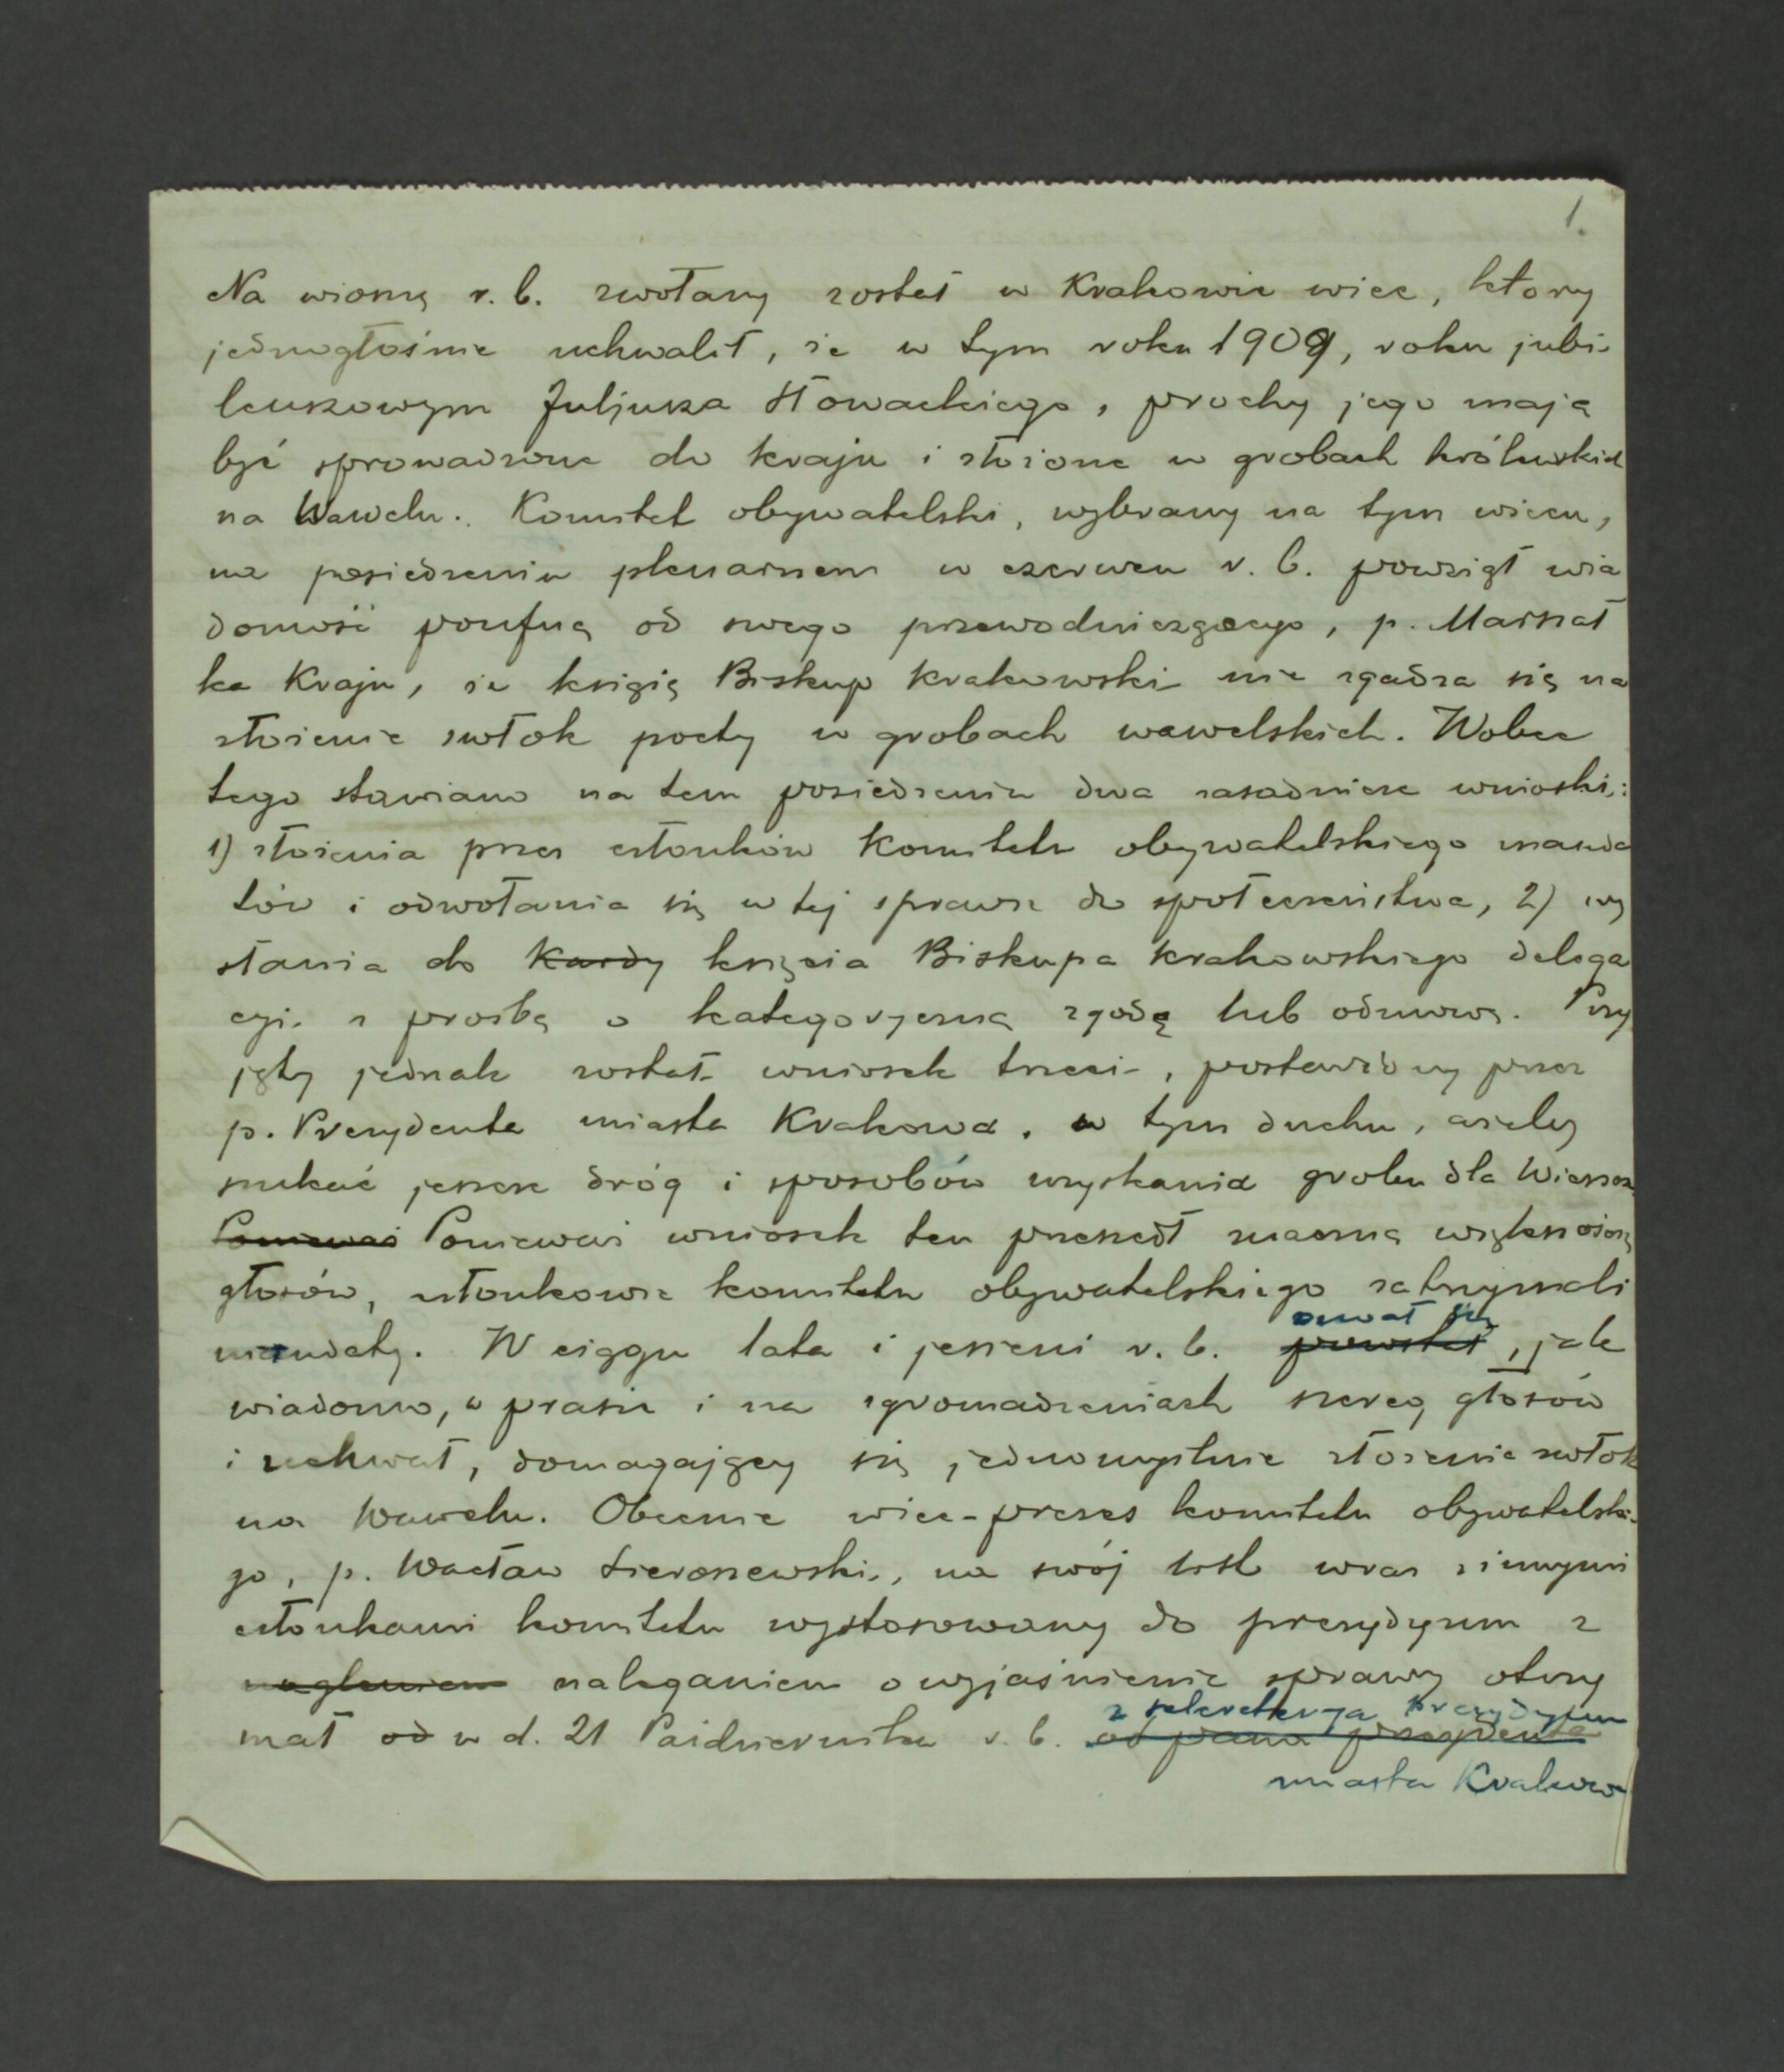 1.
Na wiosnę r. b. zwołany został w Krakowie wiec, który
jednogłośnie uchwalił, że w tym roku 1909, roku jubi-
leuszowym Juljusza Słowackiego, prochy jego mają
być sprowadzone do kraju i złożone w grobach królewskich
na Wawelu. Komitet obywatelski, wybrany na tym wiecu,
na posiedzeniu plenarnem w czerwcu r. b. powziął wia
domość poufną od swego przewodniczącego, p. Marszał
ka Kraju, że książę Biskup krakowski nie zgadza się na
złożenie zwłok poety w grobach wawelskich. Wobec
tego stawiano na tem posiedzeniu dwa zasadnicze wnioski:
1) złożenia przez członków Komitetu obywatelskiego manda
tów i odwołania się w tej sprawie do społeczeństwa, 2) wy
słania do Kardy księcia Biskupa krakowskiego delega
cyi z prośbą o kategoryczną zgodę lub odmowę. Przy
jęty jednak został wniosek trzeci, postawiony przez
p. Prezydenta miasta Krakowa, w tym duchu, ażeby
szukać jeszcze dróg i sposobów uzyskania grobu dla Wieszcza.
Ponieważ Ponieważ wniosek ten przeszedł znaczną większością
głosów, członkowie komitetu obywatelskiego zatrzymali
mandaty. W ciągu lata i jesieni r. b. powstał ozwał się, jak
wiadomo, w prasie i na zgromadzeniach szereg głosów
i uchwał, domagający się jednomyślnie złożenie zwłok
na Wawelu. Obecnie wice-prezes komitetu obywatelskie-
go, p. Wacław Sieroszewski, na swój list wraz z innymi
członkami komitetu wystosowany do prezydyum z
naleganiem o wyjaśnienie sprawy otrzy
mał od w d. 21 Października r. b. od pana prezydenta z sekretaryja prezydyum
miasta Krakowa